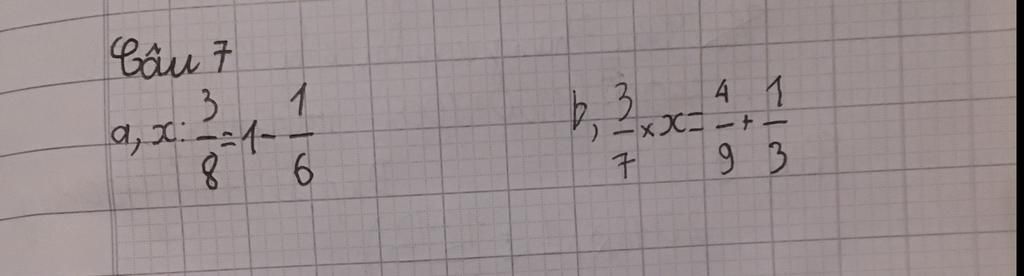 Câu 7
a, x : 3/8 = 1 - 1/6
b, 3/7 × x = 4/9 + 1/3